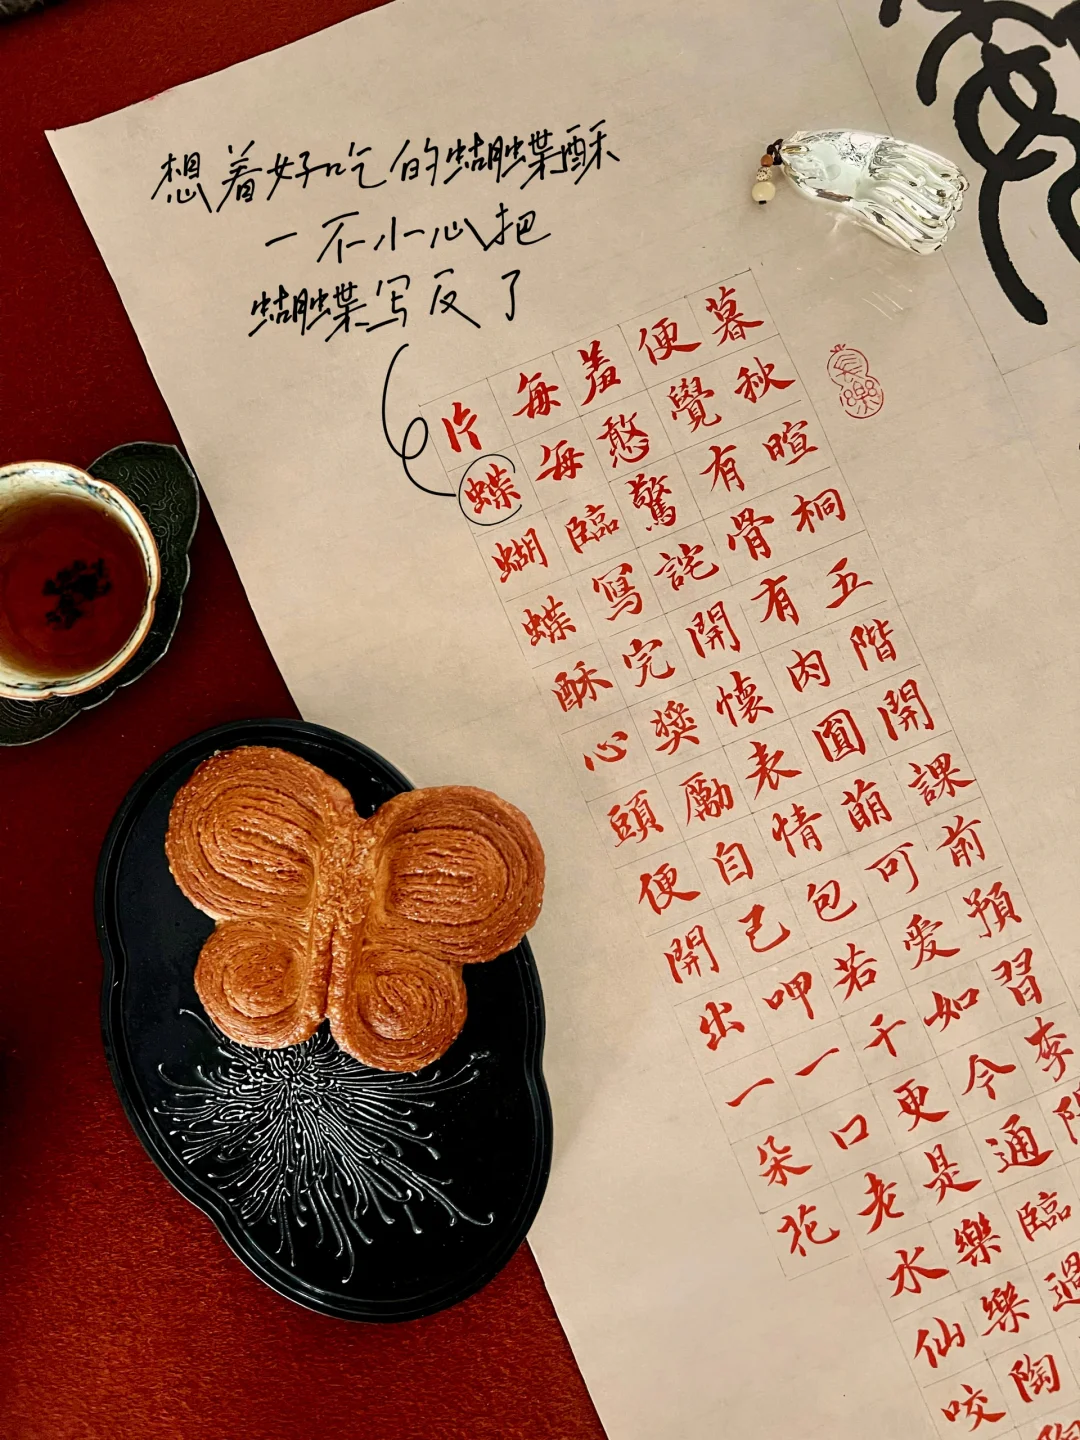 想着好吃的蝴蝶酥
一不小心把
蝴蝶写反了
長樂
暮秋暄桐五階開課前預習李
便覺有骨有肉圓萌可愛如今通臨過
羞憨驚詫開懷表情包若干更是樂樂陶陶
每每臨寫完獎勵自己呷一口老水仙咬
片蝶蝴蝶酥心頭便開出一朵花